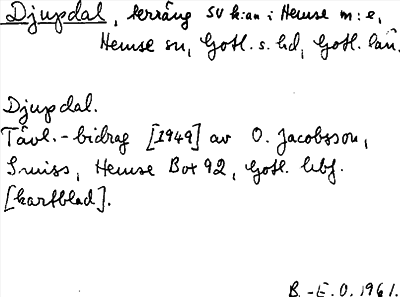 Djupdal, terräng SV k:an i Hemse m:e,
Hemse sn, Gotl. s. hd, Gotl. län.
Djupdal.
Tävl.-bidrag [1949] av O. Jacobsson,
Smiss, Hemse Box 92, Gotl. hbf.
[kartblad].
B.-E. O. 1961.